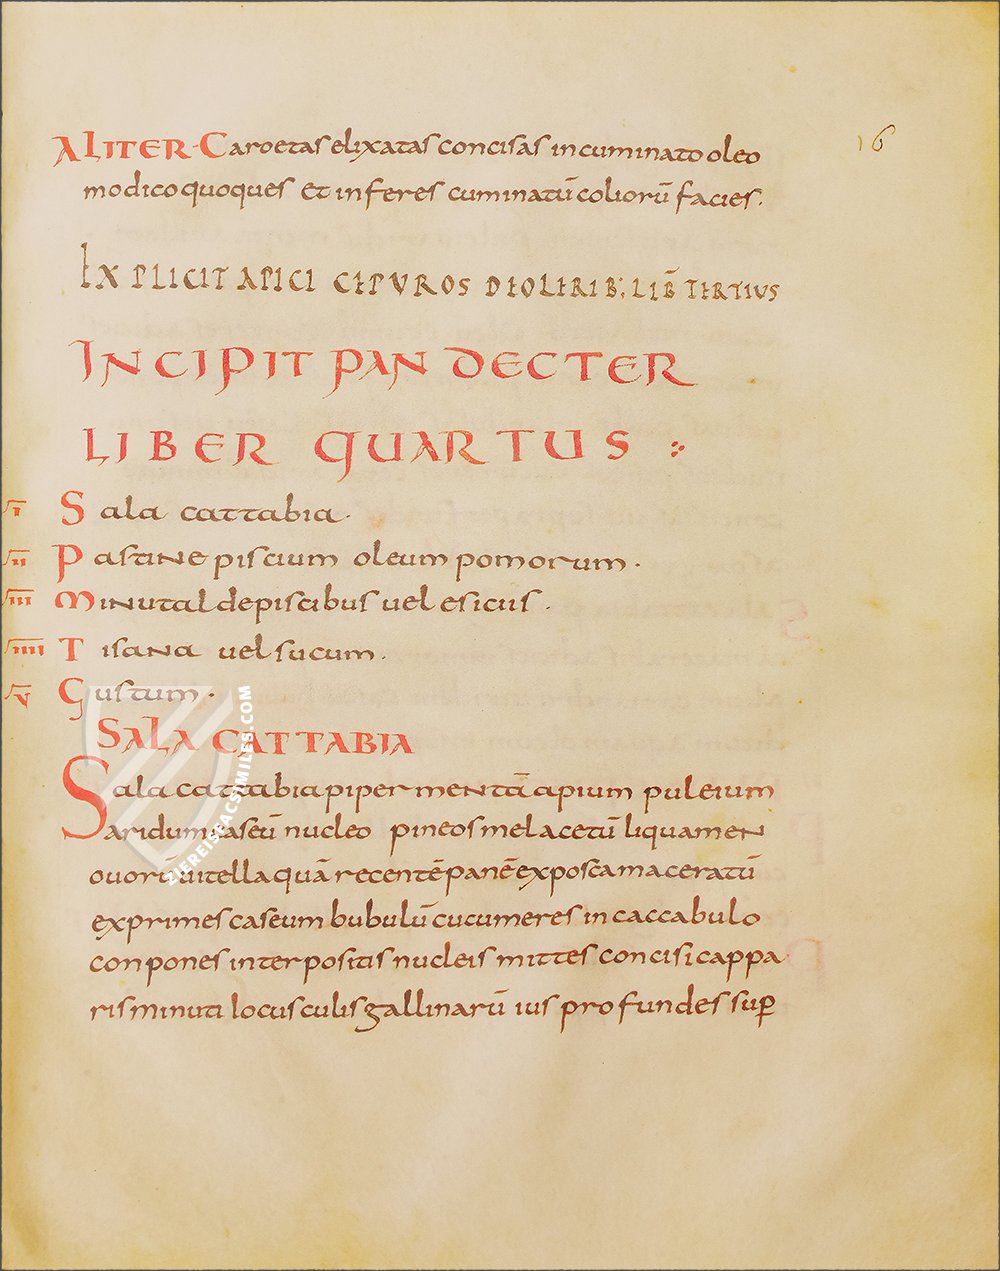 ALITER·Caroetas elixatas concisas in cuminato oleo
modico quoques et inferes cuminatū coliorū facies.
16
EXPLICIT APICI CEPUROS DEOLERIB; LIB̄ TERTIUS
INCIPIT PANDECTER
LIBER QUARTUS
I Sala cattabia.
II Pastine piscium oleum pomorum.
III Minutal de piscibus vel esiciis.
IIII Tisana vel sucum.
V Gustum.
SALA CATTABIA
Sala cattabia piper mentā apium puleium
aridum caseū nucleo pineos mel acetū liquamen
ovorū vitella quā recentē panē ex posca maceratū
exprimes caseum bubulū cucumeres in caccabulo
conpones interpositis nucleis mittes concisi cappa
ris minuti locusculis gallinarū ius profundes sup̄
ZIEREISFACSIMILES.COM